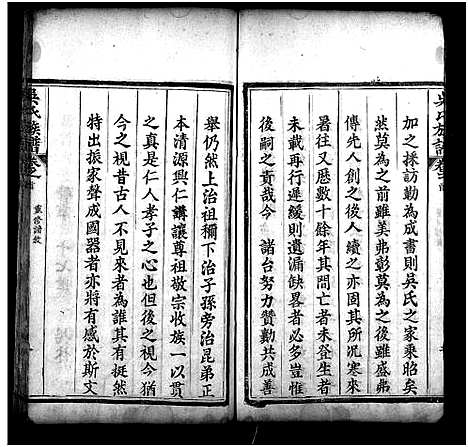 吳氏族譜
卷之首
加之採訪勤為成書則吳氏之家乘昭矣
然莫為之前雖美弗彰莫為之後雖盛弗
傳先人創之後人續之亦固其所況寒來
暑往又歷數十餘年其間亡者未登生者
未載再行遲緩則遺漏缺畧者必多豈惟
後嗣之責哉今 諸台努力贊勷共成善
舉仍然上治祖禰下治子孫旁治昆弟正
本清源興仁講讓尊祖敬宗收族一以貫
之真是仁人孝子之心也但後之視今猶
今之視昔古人不見來者為誰其有挺然
特出振家聲成國器者亦將有感於斯文
吳氏族譜
卷之首
重修譜敘